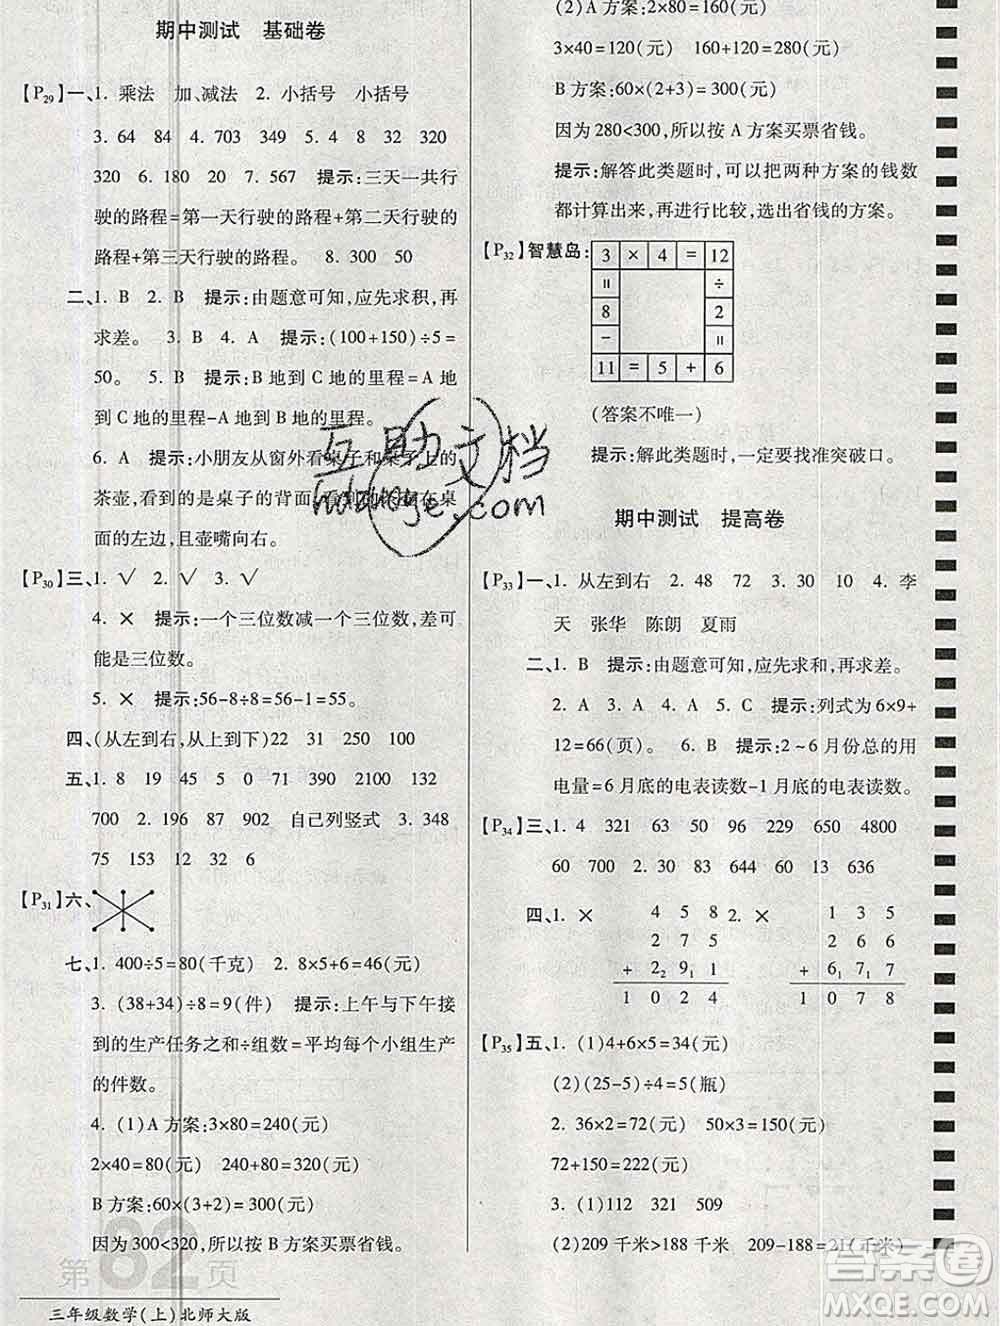 期中测试　基础卷
【P29】一、1. 乘法　加、减法　2. 小括号　小括号
3. 64　84　4. 703　349　5. 4　8　32　320
320　6. 180　20　7. 567　提示:三天一共行
驶的路程=第一天行驶的路程+第二天行驶的
路程+第三天行驶的路程。　8. 300　50
二、1. B　2. B　提示:由题意可知,应先求积,再
求差。　3. B　4. A　提示:(100+150)÷5=
50。　5. B　提示:B地到C地的里程=A地
到C地的里程-A地到B地的里程。
6. A　提示:小朋友从窗外看桌子和桌子上的
茶壶,看到的是桌子的背面,看到的茶壶在桌
面的左边,且壶嘴向右。
【P30】三、1. √　2. √　3. √
4. ×　提示:一个三位数减一个三位数,差可
能是三位数。
5. ×　提示:56-8÷8=56-1=55。
四、(从左到右,从上到下)22　31　250　100
五、1. 8　19　45　5　0　71　390　2100　132
700　2. 196　87　902　自己列竖式　3. 348
75　153　12　32　6
【P31】六、
七、1. 400÷5=80(千克)　2. 8×5+6=46(元)
3. (38+34)÷8=9(件)　提示:上午与下午接
到的生产任务之和÷组数=平均每个小组生产
的件数。
4. (1)A方案:3×80=240(元)
2×40=80(元)　240+80=320(元)
B方案:60×(3+2)=300(元)
因为300<320,所以按B方案买票省钱。
第62页
三年级数学(上)北师大版
(2)A方案:2×80=160(元)
3×40=120(元)　160+120=280(元)
B方案:60×(2+3)=300(元)
因为280<300,所以按A方案买票省钱。
提示:解答此类题时,可以把两种方案的钱数
都计算出来,再进行比较,选出省钱的方案。
【P32】智慧岛:
3 × 4 = 12
=　÷
8　2
-　=
11 = 5 + 6
(答案不唯一)
提示:解此类题时,一定要找准突破口。
期中测试　提高卷
【P33】一、1. 从左到右　2. 48　72　3. 30　10　4. 李
天　张华　陈朗　夏雨
二、1. B　提示:由题意可知,应先求和,再求差。
2. A　3. A　4. A　5. C　提示:列式为6×9+
12=66(页)。　6. B　提示:2~6月份总的用
电量=6月底的电表读数-1月底的电表读数。
【P34】三、1. 4　321　63　50　96　229　650　4800
60　700　2. 30　83　644　60　13　636
四、1. ×　4 5 8　2. ×　1 3 5
2 7 5　2 6 6
+ 2₂9₁1　+ 6₁7₁7
1 0 2 4　1 0 7 8
【P35】五、1. (1)4+6×5=34(元)
(2)(25-5)÷4=5(瓶)
2. 36×2=72(元)　50×3=150(元)
72+150=222(元)
3. (1)112　321　509
(2)209千米>188千米　209-188=21(千米)
互助文档
huzhuwendang.com
答案圈
MXQE.COM